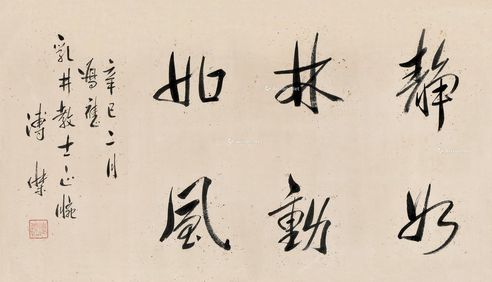 靜如
林動
如風
辛巳二月
應
乳井教士正腕
溥傑